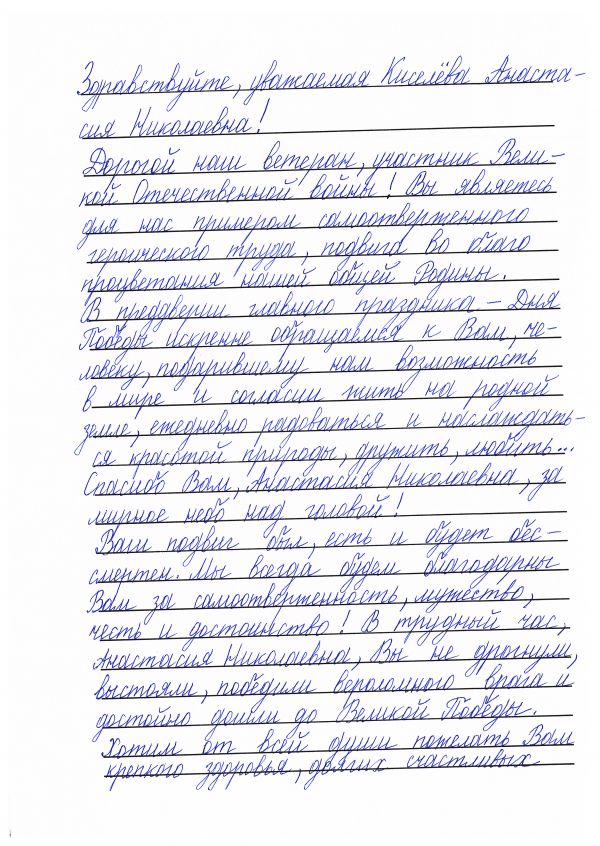 Здравствуйте, уважаемая Киселёва Анаста-
сия Николаевна!
Дорогой наш ветеран, участник Вели-
кой Отечественной войны! Вы являетесь
для нас примером самоотверженного
героического труда, подвига во благо
процветания нашей общей Родины.
В преддверии главного праздника – Дня
Победы искренне обращаемся к Вам, че-
ловеку, подарившему нам возможность
в мире и согласии жить на родной
земле, ежедневно радоваться и наслаждать-
ся красотой природы, дружить, любить...
Спасибо Вам, Анастасия Николаевна, за
мирное небо над головой!
Ваш подвиг был, есть и будет бес-
смертен. Мы всегда будем благодарны
Вам за самоотверженность, мужество,
честь и достоинство! В трудный час,
Анастасия Николаевна, Вы не дрогнули,
выстояли, победили вероломного врага и
достойно дошли до Великой Победы.
Хотим от всей души пожелать Вам
крепкого здоровья, долгих счастливых